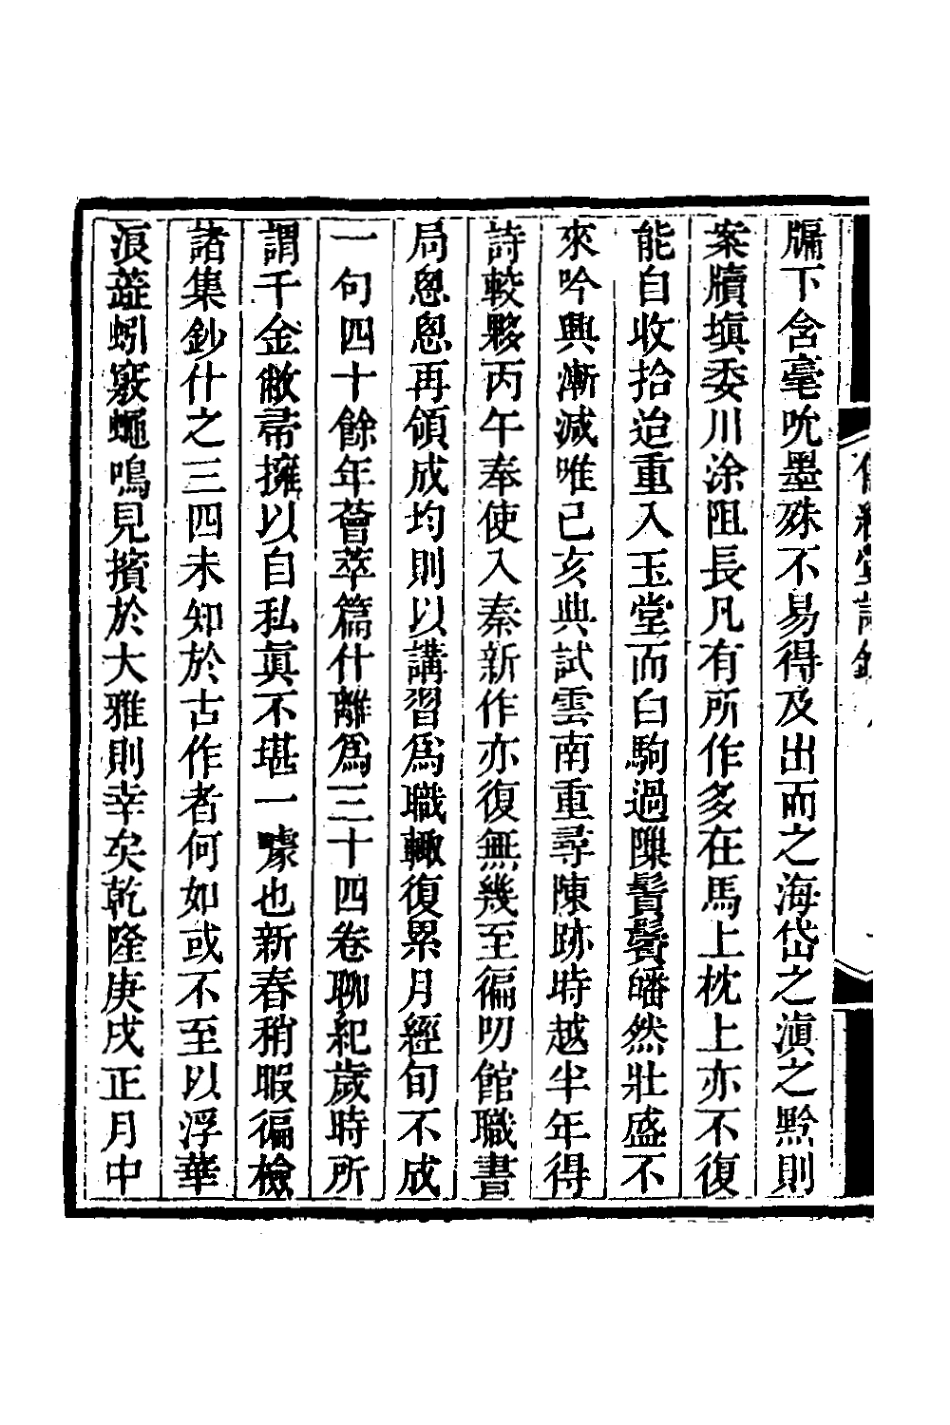 牖下含毫吮墨殊不易得及出而之海岱之滇之黔則
案牘塡委川涂阻長凡有所作多在馬上枕上亦不復
能自收拾迨重入玉堂而白駒過隟鬚鬢皤然壯盛不
來吟興漸減唯己亥典試雲南重尋陳跡時越半年得
詩較夥丙午奉使入秦新作亦復無幾至徧叨館職書
局悤悤再領成均則以講習爲職輙復累月經旬不成
一句四十餘年薈萃篇什離爲三十四卷聊紀歲時所
謂千金敝帚擁以自私眞不堪一噱也新春稍暇徧檢
諸集鈔什之三四未知於古作者何如或不至以浮華
浪蘂蚓竅蠅鳴見擯於大雅則幸矣乾隆庚戌正月中